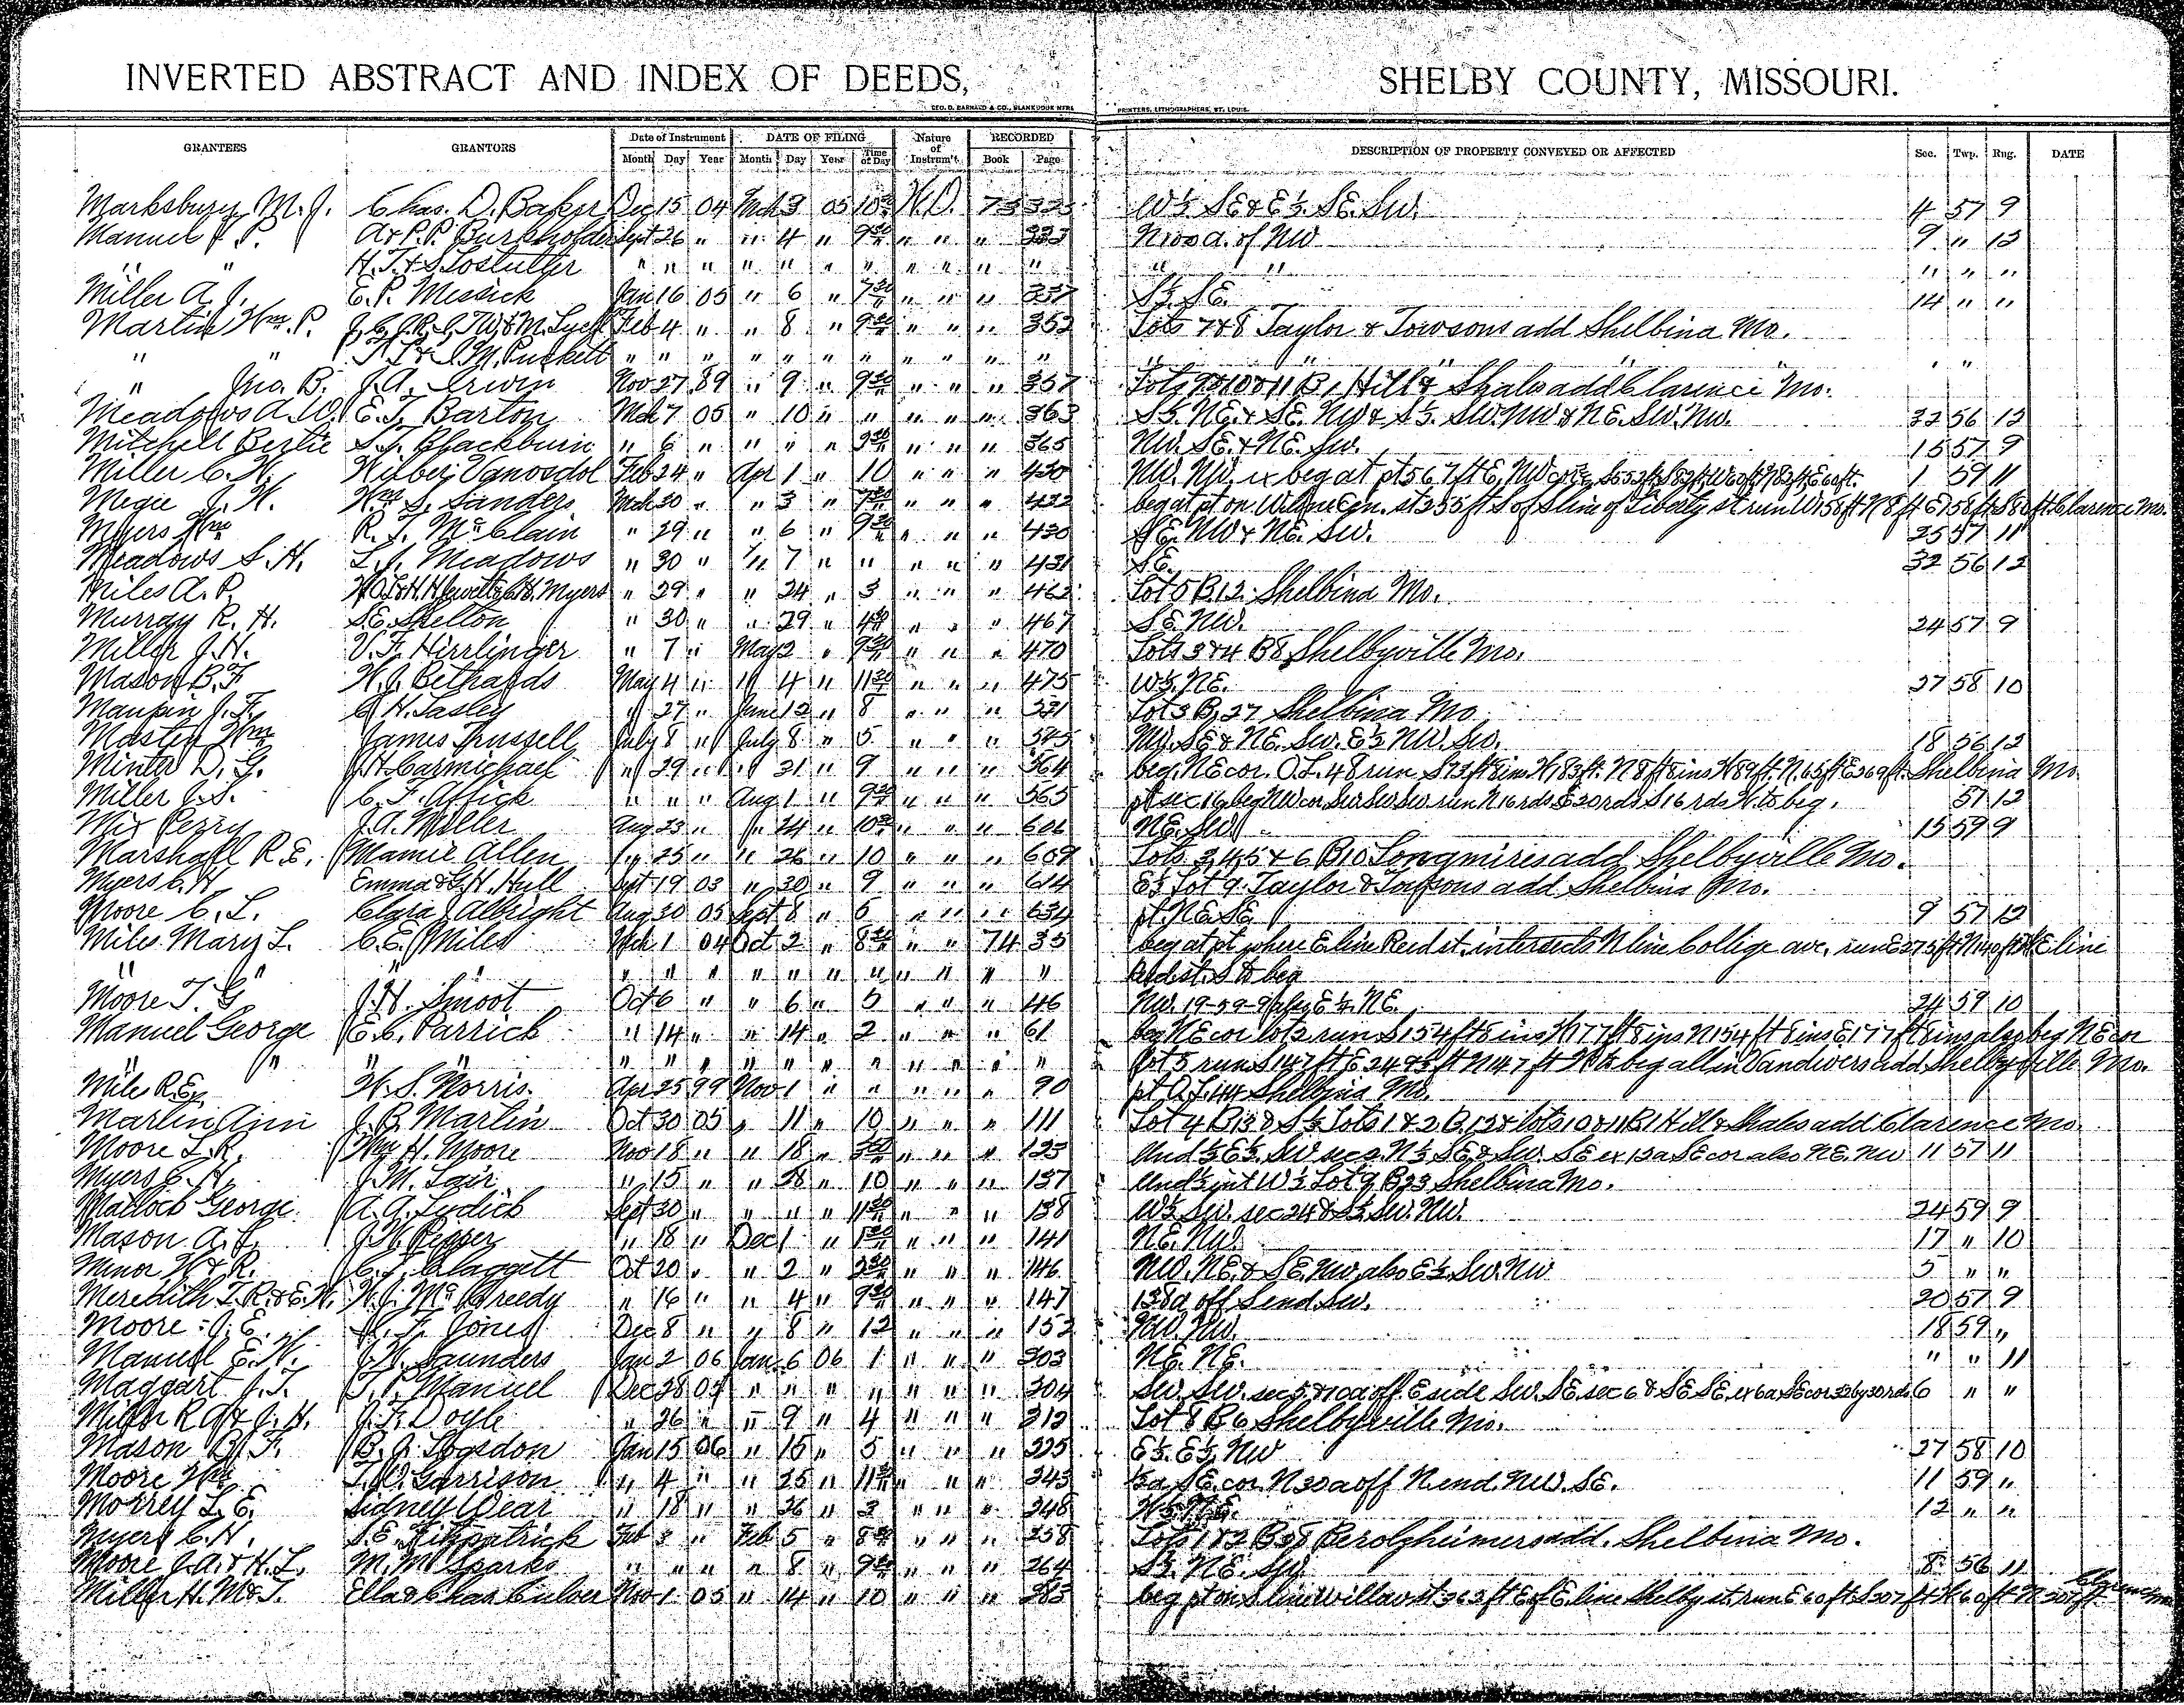 INVERTED ABSTRACT AND INDEX OF DEEDS, SHELBY COUNTY, MISSOURI.
GEO. D. BARNARD & CO., BLANK BOOK MFRS. PRINTERS, LITHOGRAPHERS, ST. LOUIS.
GRANTEES GRANTORS Date of Instrument DATE OF FILING Nature of Instrum't RECORDED DESCRIPTION OF PROPERTY CONVEYED OR AFFECTED Sec. Twp. Rng. DATE
Month Day Year Month Day Year Time of Day Book Page
Marksbury M. J. Chas. D. Baker Dec 15 04 Mch 3 05 W.D. 73 W½ SE & E½ SE. SW. 4 57 9
Manuel J. P. A & P.P. Burkholder Sept 26 " " 4 " 9 30 " " " 333 of NW 9 " 12
" " H.T. & S. " " " " " " " " " " " " " " " "
Miller A. J. E. P. Messick Jan 16 05 " 6 " 7 30 " " " 337 S½ SE. 14 " "
Martin Wm. P. Feb 4 " " 8 " 9 30 " " " 352 Lots 7 & 8 Taylor & Towsons add Shelbina Mo.
" " Puckett " " " " " " " " " " " " " " " " "
" Jno. B. J. A. Irwin Nov 27 89 " 9 " 9 30 " " " 357 Lots 9 & 10 & 11 B 1 Hill & Shales add Clarence Mo.
Meadows A. W. E. T. Barton Mch 7 05 " 10 " " " " " 363 S½ NE. & SE. NW & S½ SW. NW & NE. SW. NW. 32 56 12
Mitchell Bertie S. T. Blackburn " 6 " " " " " " " 365 NW. SE. & NE. SW. 15 57 9
Miller C. W. Wilber Vanosdol Feb 24 " Apr 1 " 10 " " " 420 NW. NW. ex beg at pt 567 ft E, NW cor 1 59 11
Megee J. W. Wm S. Sanders Mch 30 " " 3 " 7 30 " " " 422 beg at pt on W. line st 255 ft S of S line of Liberty st run W 158 ft N 8 ft E 158 ft S 80 ft Clarence Mo.
Myers Wm R. T. McClain " 29 " " 6 " 9 30 " " " 430 SE. NW & NE. SW. 25 57 11
Meadows S. H. L. J. Meadows " 30 " " 7 " " " " " 431 SE. 32 56 12
Miles A. P. Myers " 29 " " 24 " 3 " " " 462 Lot 5 B. 12 Shelbina Mo.
Murray R. H. S. E. Shelton " 30 " " 29 " 4 30 " " " 467 SE. NW. 24 57 9
Miller J. H. V. F. Hirrlinger " 7 " May 2 " 9 30 " " " 470 Lots 3 & 4 B 8 Shelbyville Mo.
Mason B. F. W. J. Bethards May 4 " " 4 " 11 30 " " " 475 W½ NE. 27 58 10
Maupin J. F. C. H. Lasley " 27 " June 12 " 8 " " " Lot 3 B. 27 Shelbina Mo.
Masten Wm James Trussell July 8 " July 8 " 5 " " " 545 NW. SE & NE. SW. E½ NW. SW. 18 56 12
Minter D. G. J. H. Carmichael " 29 " " 31 " 9 " " " 564 beg. NE cor. O.L. 48 run S 73 ft 8 ins W 183 ft. N 8 ft 8 ins W 89 ft. N. 65 ft E 269 ft. Shelbina Mo.
Miller J. S. C. F. Affick " " " Aug 1 " 9 30 " " " 565 pt sec 16 beg NW cor SW SW SW run N 16 rds E 20 rds S 16 rds W. to beg. 57 12
Mix Perry J. A. Miller Aug 23 " " 24 " 10 30 " " " 606 NE. SW 15 59 9
Marshall R. E. Mamie Allen " 25 " " 26 " 10 " " " 609 Lots 3, 4, 5 & 6 B 10 Longmires add Shelbyville Mo.
Myers C. H. Emma & G. H. Hull Sept 19 03 " 30 " 9 " " " 614 E½ Lot 9. Taylor & Towsons add Shelbina Mo.
Moore C. L. Clara J Albright Aug 30 05 Sept 8 " 6 " " " 634 pt. NE. SE 9 57 12
Miles Mary L. C. E. Miles Mch 1 04 Oct 2 " 8 30 " " 74 35 beg at pt where E line Reed st. intersects N line College ave. run E 275 ft E line
" " " " " " " " " " " " " " " Reed st. S to beg
Moore T. G. J. H. Smoot Oct 6 " " 6 " 5 " " " 46 NW. 19-59-9 also E½ NE. 24 59 10
Manuel George E. C. Parrick " 14 " " 14 " 2 " " " 61 beg NE cor lot 2 run S 154 ft 8 ins W 177 ft 8 ins N 154 ft 8 ins E 177 ft 8 ins also beg NE cor
" " " " " " " " " " " " " " " Lot 5 run S 147 ft E ft N 147 ft W to beg all in Vandivers add Shelbyville Mo.
Mile R. E. W. S. Norris Apr 25 99 Nov 1 " " " " " 90 pt O.L. 44 Shelbina Mo.
Martin Ann J. B. Martin Oct 30 05 " 11 " 10 " " " 111 Lot 4 B 13 & S½ Lots 1 & 2 B. 12 & lots 10 & 11 B 1 Hill & Shales add Clarence Mo.
Moore L. R. Wm H. Moore Nov 18 " " 18 " 3 30 " " " 123 Und ½ E½ SW sec 2. N½ SE & SW. SE ex 12 a SE cor also NE. NW 11 57 11
Myers C. H. J. M. Lair " 15 " " 28 " 10 " " " 137 Und ½ int W½ Lot 9 B 23 Shelbina Mo.
Matlock George A. A. Lydick Sept 30 " " " " 11 30 " " " 138 W½ SW. sec 24 & S½ SW. NW. 24 59 9
Mason A. L. J. W. Pepper " 18 " Dec 1 " 1 30 " " " 141 NE. NW. 17 " 10
Minor W. & R. C. J. Claggett Oct 20 " " 2 " 2 30 " " " 146 NW. NE. & SE. NW also E½ SW. NW 5 " "
Meredith T. R. & E. W. W. J. McCreedy " 16 " " 4 " 9 30 " " " 147 138 a off S end SW. 20 57 9
Moore J. E. F. Jones Dec 8 " " 8 " 12 " " " 152 NW. NW. 18 59 "
Manuel E. W. J. W. Saunders Jan 2 06 Jan 6 06 1 " " " 203 NE. NE. " " 11
Maggart J. T. T. P. Manuel Dec 28 05 " " " " " " " 204 SW. SW. sec 5 & 10 a off E side SW. SE. sec 6 & SE SE. ex 6 a SE cor 32 by 30 rds 6 " "
Miller R A & J. H. J. F. Doyle " 26 " " 9 " 4 " " " 212 Lot 8 B 6 Shelbyville Mo.
Mason B. F. B. J. Logsdon Jan 15 06 " 15 " 5 " " " 225 E½ E½ NW 27 58 10
Moore Wm T. W. Garrison " 4 " " 25 " 11 30 " " " 243 5 a SE. cor. N 30 a off N. end. NW. SE. 11 59 "
Morrey L. E. Sidney Wear " 18 " " 26 " 3 " " " 248 12 " "
Myers C. H. S. E. Fitzpatrick Feb 3 " Feb 5 " 8 30 " " " 258 Lots 1 & 2 B 38 Perolzheimers add. Shelbina Mo.
Moore J. A. & H. L. M. M. Sparks " " " " 8 " 9 30 " " " 264 S½ NE. SW. 8 56 11
Miller H. M. & T. Ella & Chas Culver Nov 1 05 " 14 " 10 " " " 283 beg pt on S line Willow st 363 ft E of E. line Shelby st. run E 60 ft S 207 ft W 60 ft N 207 ft Clarence Mo